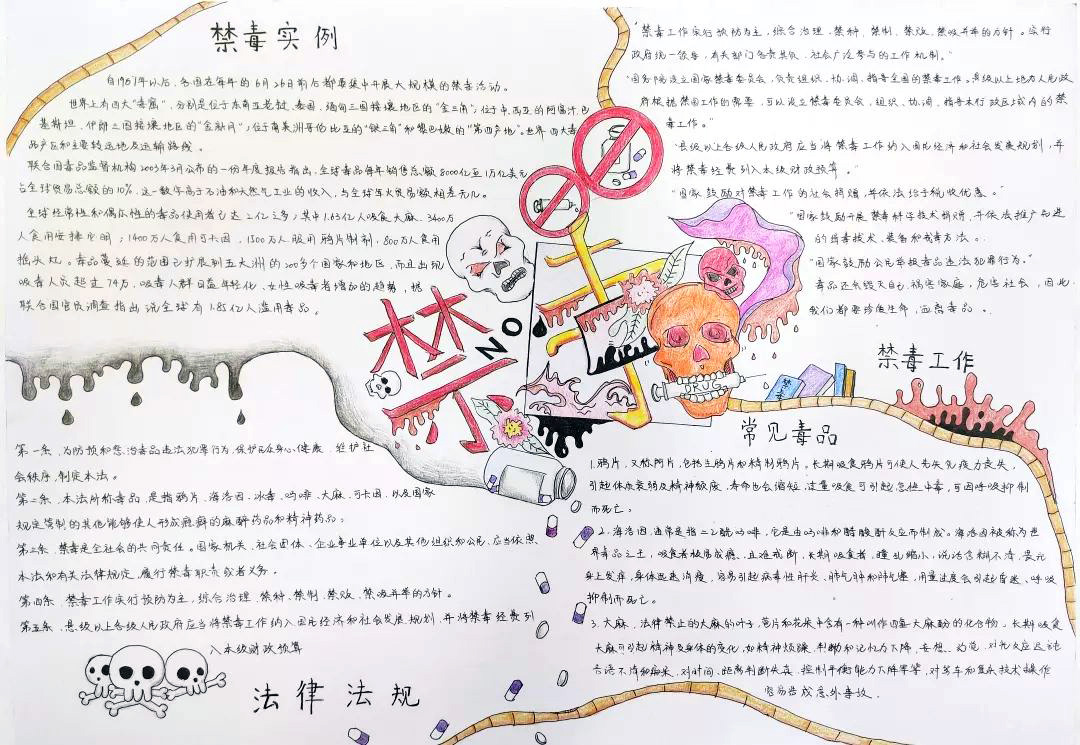 禁毒实例
自1987年以后,各国在每年的6月26日前后都要集中开展大规模的禁毒活动。
世界上有四大"毒窟",分别是位于东南亚老挝、泰国、缅甸三国接壤地区的"金三角";位于中、西亚的阿富汗、巴
基斯坦、伊朗三国接壤地区的"金新月";位于南美洲哥伦比亚的"银三角"和黎巴嫩的"第四产地"。世界四大毒
品产区和主要转运地及运输路线。
联合国毒品监督机构2005年3月公布的一份年度报告指出,全球毒品每年销售总额8000亿至1万亿美元
占全球贸易总额的10%,这一数字高于石油和天然气工业的收入,与全球军火贸易额相差无几。
全球经常性和偶尔性的毒品使用者已达2亿之多,其中1.63亿人吸食大麻、3400万
人食用安非他明;1400万人食用可卡因,1500万人服用鸦片制剂,800万人食用
摇头丸。毒品蔓延的范围已扩展到五大洲的200多个国家和地区,而且出现
吸毒人员超过79万,吸毒人群日益年轻化、女性吸毒者增加的趋势,据
联合国官员调查指出说全球有1.85亿人滥用毒品。
"禁毒工作实行预防为主,综合治理,禁种、禁制、禁贩、禁吸并举的方针。实行
政府统一领导,有关部门各负其责,社会广泛参与的工作机制。"
"国务院设立国家禁毒委员会,负责组织、协调、指导全国的禁毒工作。县级以上地方人民政
府根据禁毒工作的需要,可以设立禁毒委员会,组织、协调、指导本行政区域内的禁
毒工作。"
"县级以上各级人民政府应当将禁毒工作纳入国民经济和社会发展规划,并
将禁毒经费列入本级财政预算。"
"国家鼓励对禁毒工作的社会捐赠,并依法给予税收优惠。"
"国家鼓励开展禁毒科学技术研究,并依法推广先进
的缉毒技术、装备和戒毒方法。
"国家鼓励公民举报毒品违法犯罪行为。"
毒品还会毁灭自己,祸害家庭,危害社会,因此
我们都要珍爱生命,远离毒品。
禁毒工作
禁毒
NO
DRUG
禁毒
第一条、为防预和惩治毒品违法犯罪行为,保护民众身心健康、维护社
会秩序,制定本法。
第二条、本法所称毒品,是指鸦片、海洛因、冰毒、吗啡、大麻、可卡因,以及国家
规定管制的其他能够使人形成瘾癖的麻醉药品和精神药品。
第三条、禁毒是全社会的共同责任。国家机关、社会团体、企业事业单位以及其他组织和公民,应当依照
本法和有关法律规定,履行禁毒职责或者义务。
第四条、禁毒工作实行预防为主,综合治理、禁种、禁制、禁贩、禁吸并举的方针。
第五条、县级以上各级人民政府应当将禁毒工作纳入国民经济和社会发展规划,并将禁毒经费列
入本级财政预算
法律法规
常见毒品
1.鸦片,又称阿片,包括生鸦片和精制鸦片。长期吸食鸦片可使人先天免疫力丧失,
引起体质衰弱及精神颓废,寿命也会缩短,过量吸食可引起急性中毒,可因呼吸抑制
而死亡。
2.海洛因,通常是指二乙酰吗啡,它是由吗啡和醋酸酐反应而制成。海洛因被称为世
界毒品之王,吸食者极易成瘾,且难戒断,长期吸食者,瞳孔缩小,说话含糊不清,畏光
身上发痒,身体迅速消瘦,容易引起病毒性肝炎、肺气肿和肺气塞,用量过度会引起昏迷、呼吸
抑制而死亡。
3.大麻,法律禁止的大麻的叶子、苞片和花朵中含有一种叫作四氢大麻酚的化合物。长期吸食
大麻可引起精神及身体的变化,如精神烦躁、判断和记忆力下降、妄想、幻觉、对光反应迟钝
言语不清和痴呆、对时间、距离判断失真、控制平衡能力下降等等,对驾车和复杂技术操作
容易造成意外事故.